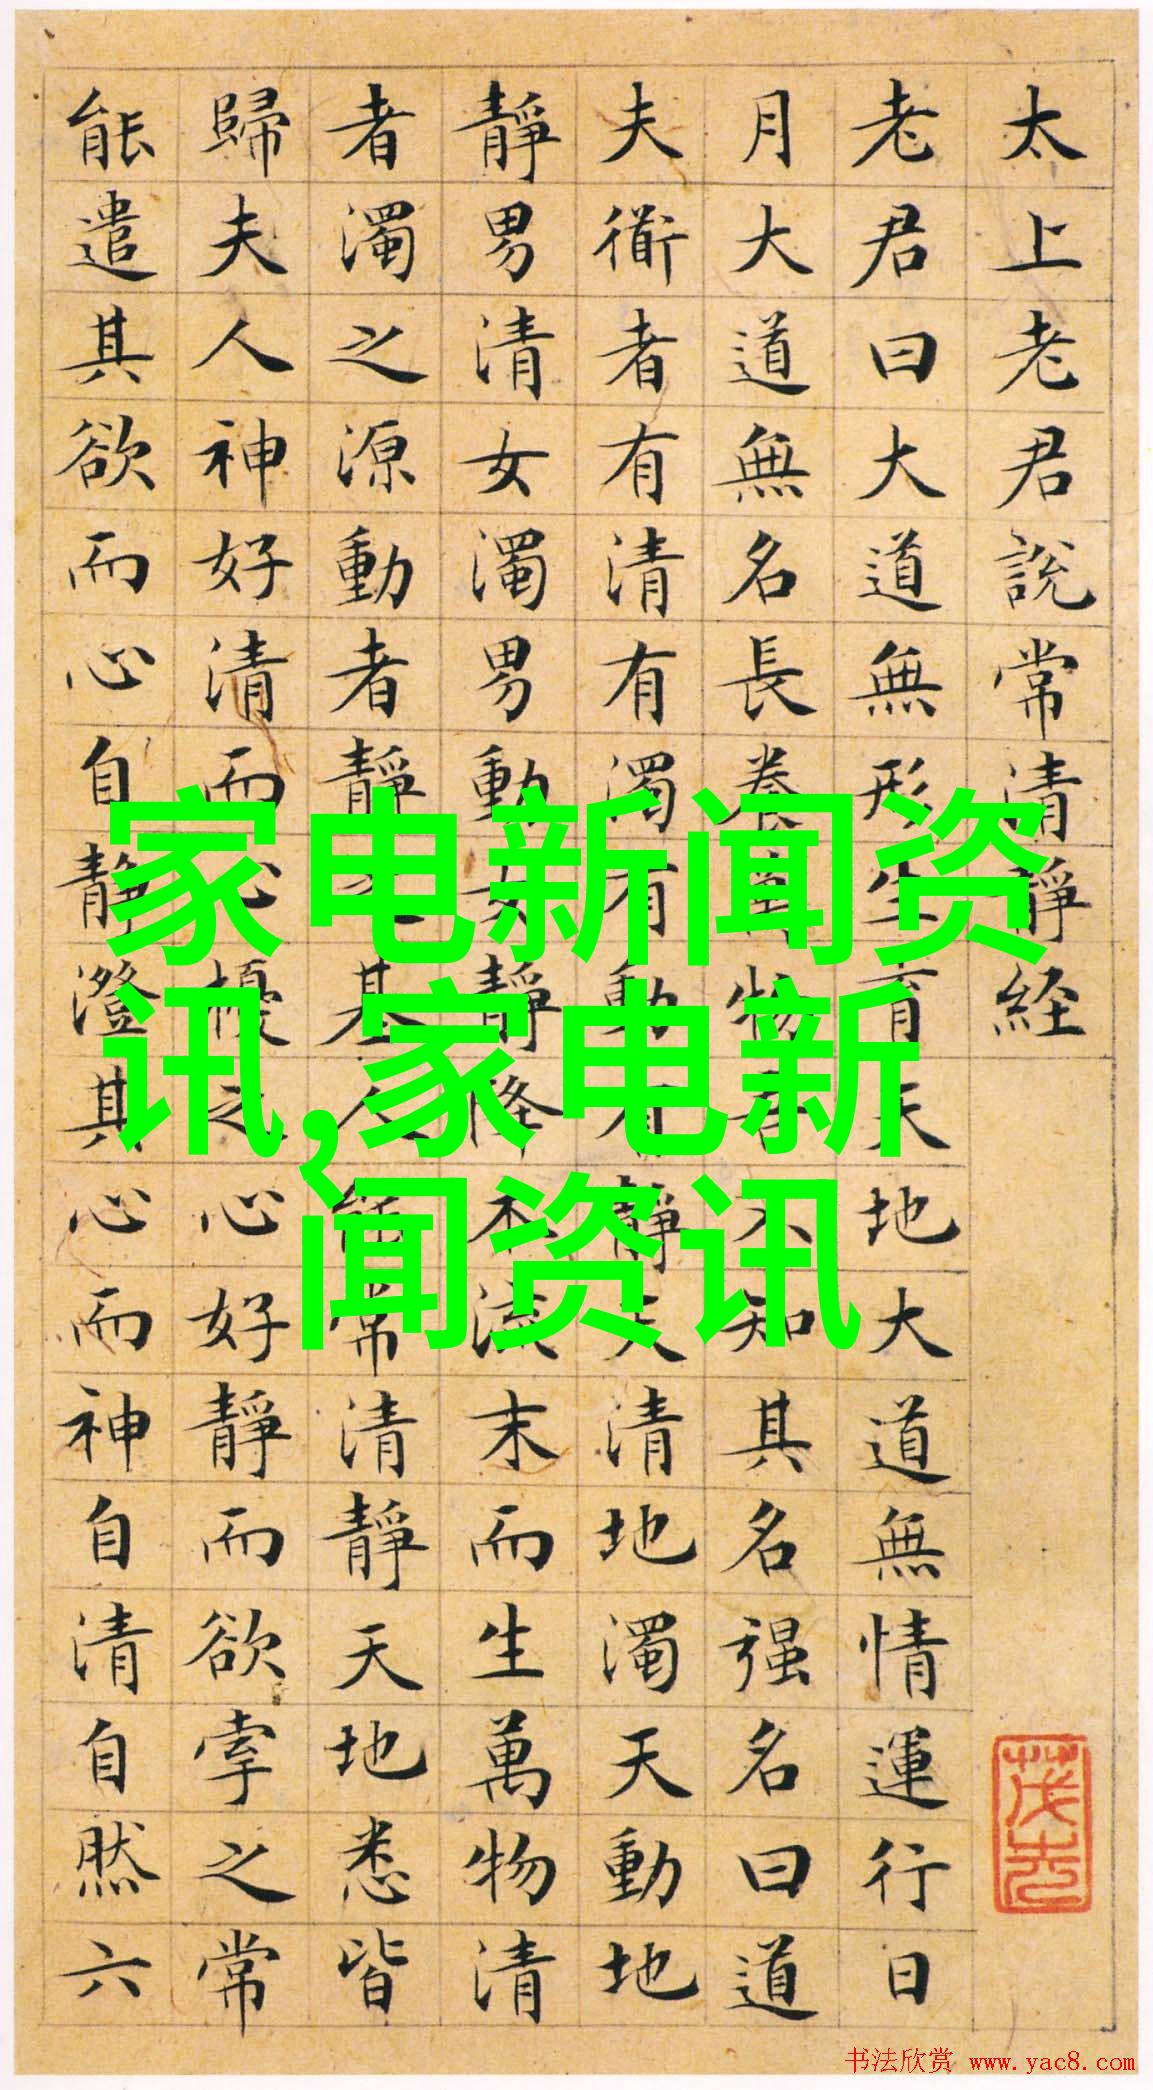 太上老君說常清靜経
老君曰大道無形生育天地大道無情運行日
月大道無名長養萬物吾不知其名强名曰道
夫衜者有清有濁有動有靜天清地濁天動地
靜男清女濁男動女靜降本流末而生萬物清
者濁之源動者靜之基人能常清靜天地悉皆
歸夫人神好清而心擾之心好靜而欲牽之常
能遣其欲而心自靜澄其心而神自清自然六
家电新闻资
讯,家电新
闻资讯
书法欣赏 www.yac8.com